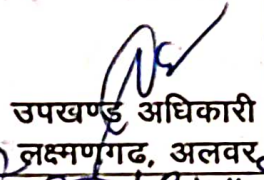 उपखण्ड अधिकारी
लक्ष्मणगढ, अलवर